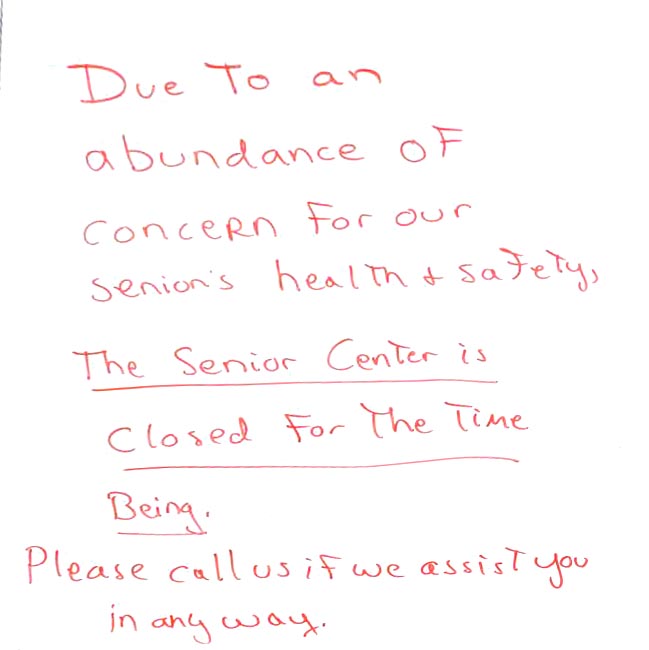 Due To an
abundance of
concern for our
senior's health + safety,
The Senior Center is
Closed for The Time
Being.
Please call us if we assist you
in any way.